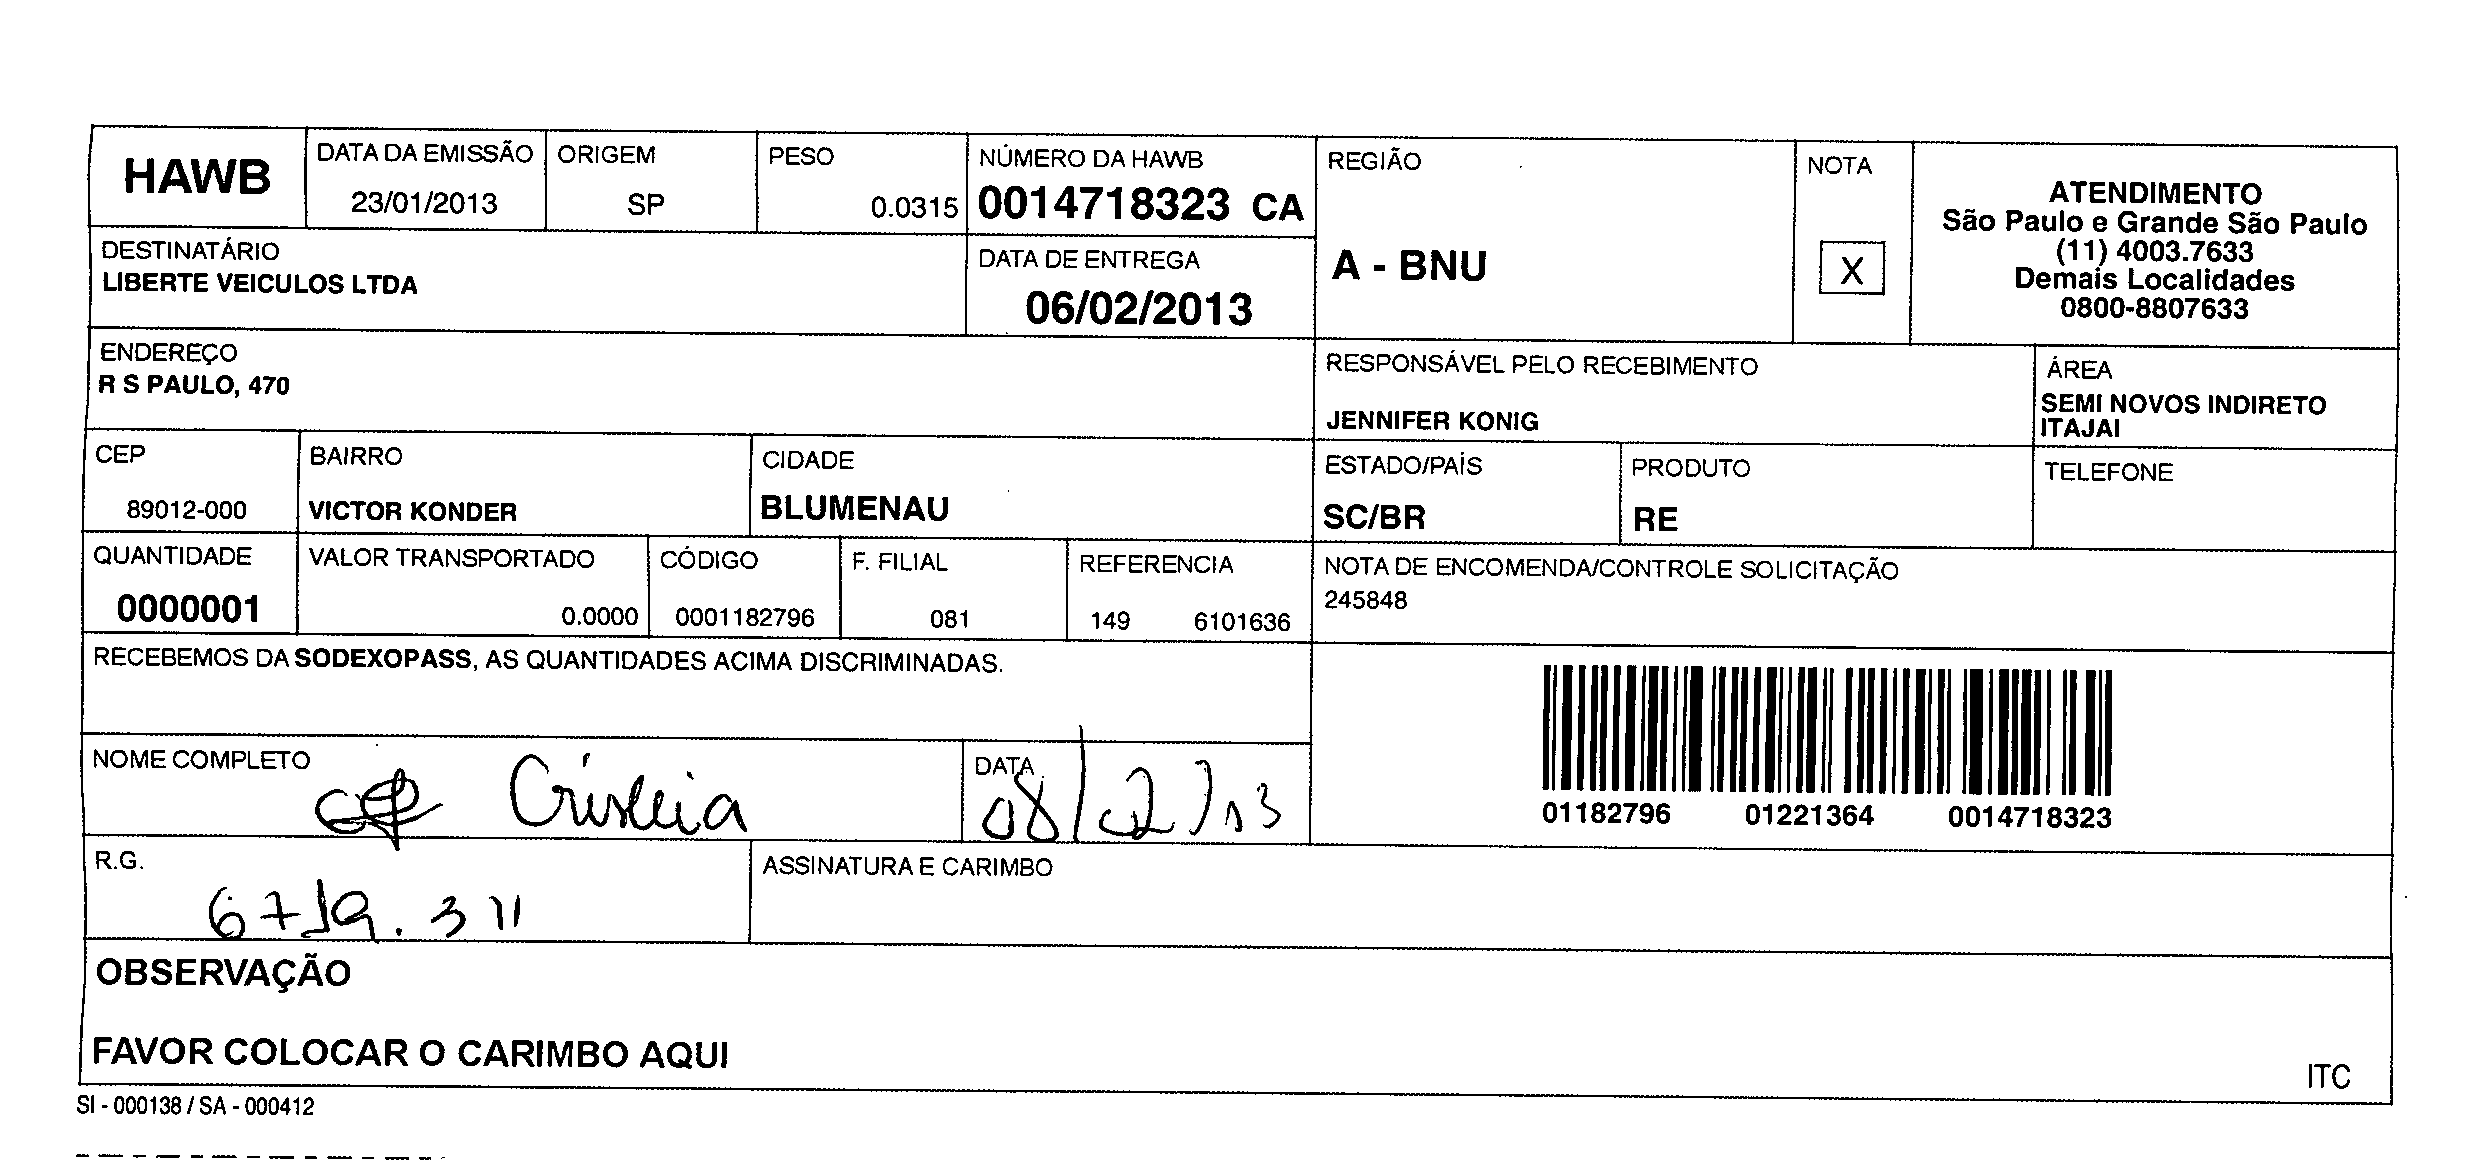 HAWB
DATA DA EMISSÃO
23/01/2013
ORIGEM
SP
PESO
0.0315
NÚMERO DA HAWB
0014718323 CA
REGIÃO
A - BNU
NOTA
X
ATENDIMENTO
São Paulo e Grande São Paulo
(11) 4003.7633
Demais Localidades
0800-8807633
DESTINATÁRIO
LIBERTE VEICULOS LTDA
DATA DE ENTREGA
06/02/2013
ENDEREÇO
R S PAULO, 470
RESPONSÁVEL PELO RECEBIMENTO
JENNIFER KONIG
ÁREA
SEMI NOVOS INDIRETO
ITAJAI
CEP
89012-000
BAIRRO
VICTOR KONDER
CIDADE
BLUMENAU
ESTADO/PAÍS
SC/BR
PRODUTO
RE
TELEFONE
QUANTIDADE
0000001
VALOR TRANSPORTADO
0.0000
CÓDIGO
0001182796
F. FILIAL
081
REFERENCIA
149 6101636
NOTA DE ENCOMENDA/CONTROLE SOLICITAÇÃO
245848
RECEBEMOS DA SODEXOPASS, AS QUANTIDADES ACIMA DISCRIMINADAS.
01182796 01221364 0014718323
NOME COMPLETO
DATA
08/02/13
R.G.
6719.311
ASSINATURA E CARIMBO
OBSERVAÇÃO
FAVOR COLOCAR O CARIMBO AQUI
ITC
SI - 000138 / SA - 000412